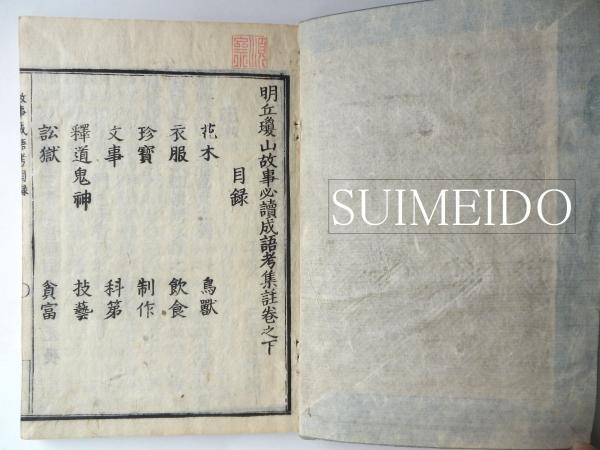 明丘瓊山故事必讀成語考集註卷之下
目録
花木 鳥獸
衣服 飲食
珍寶 制作
文事 科第
釋道鬼神 技藝
訟獄 貧富
故事成語考目録
SUIMEIDO